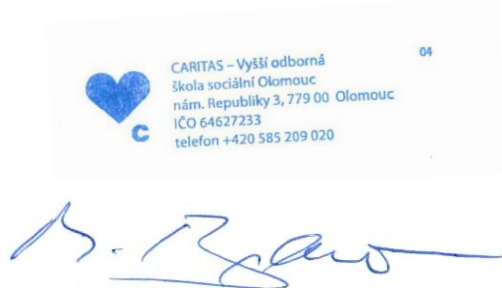 CARITAS – Vyšší odborná
04
škola sociální Olomouc
nám. Republiky 3, 779 00 Olomouc
IČO 64627233
telefon +420 585 209 020
C